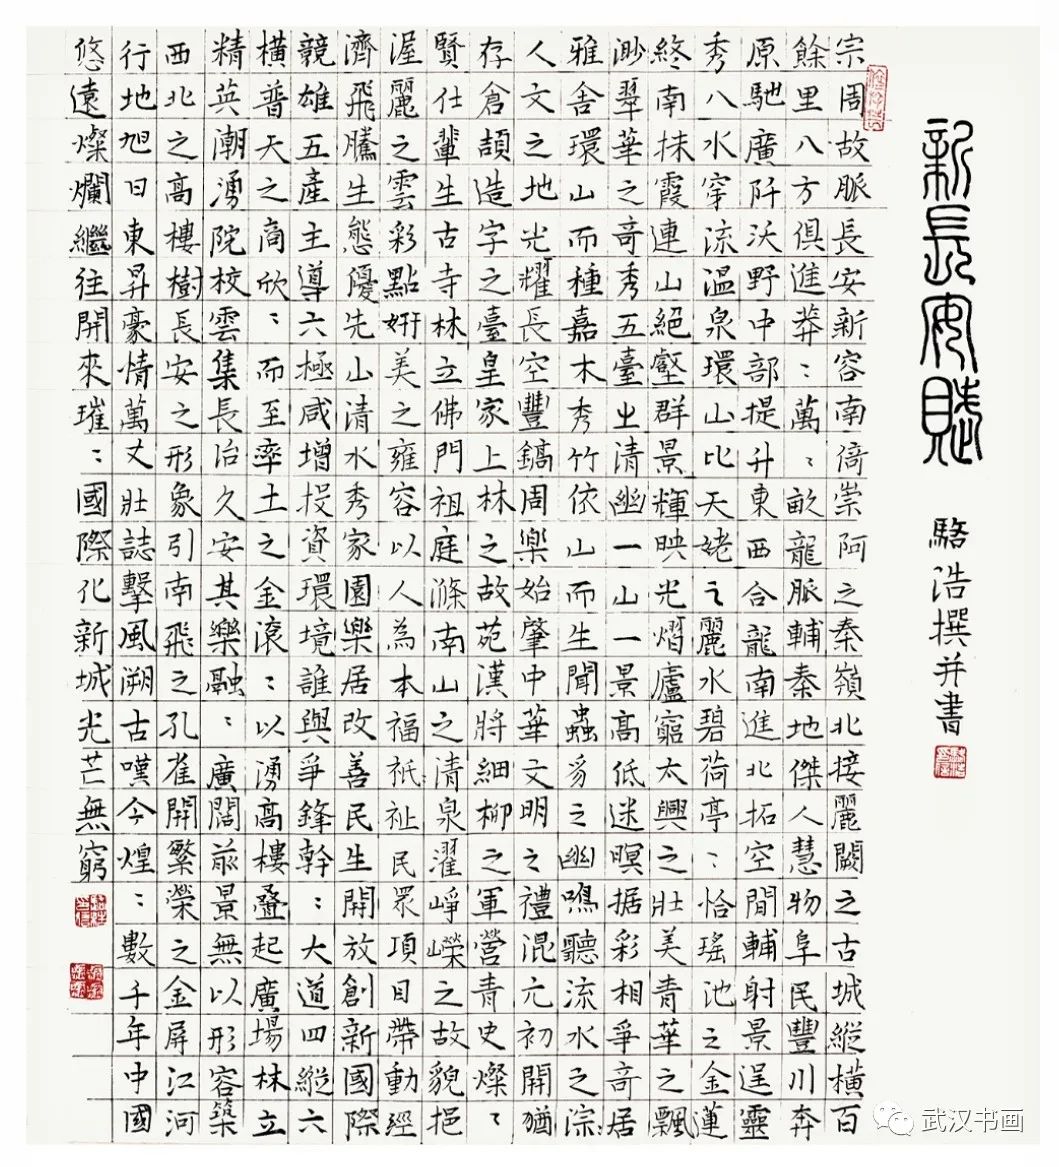 新長安賦
駱浩撰并書
宗周故脈長安新容南倚崇阿之秦嶺北接麗闕之古城縱橫百
餘里八方俱進莽〻萬〻畝龍脈輔秦地傑人慧物阜民豐川奔
原馳廣阡沃野中部提升東西合龍南進北拓空間輔射景逞靈
秀八水穿流温泉環山比天姥之麗水碧荷亭〻恰瑤池之金蓮
終南抹霞連山絕壑群景輝映光熠廬竆太興之壯美青華之飄
渺翠華之奇秀五臺之清幽一山一景高低迷暝据彩相爭奇居
雅舍環山而種嘉木秀竹依山而生聞蟲豸之幽鳴聽流水之淙
人文之地光耀長空豐鎬周樂始肇中華文明之禮混元初開猶
存倉頡造字之臺皇家上林之故苑漢將細柳之軍營青史燦〻
賢仕輩生古寺林立佛門祖庭滌南山之清泉濯崢嶸之故貌挹
渥麗之雲彩點妍美之雍容以人為本福祇祉民眾項目帶動經
濟飛騰生態優先山清水秀家園樂居改善民生開放創新國際
競雄五產主導六極咸增投資環境誰與爭鋒幹〻大道四縱六
橫普天之商欣〻而至率土之金滾〻以湧高樓疊起廣場林立
精英潮湧院校雲集長治久安其樂融〻廣闊前景無以形容築
西北之高樓樹長安之形象引南飛之孔雀開繁榮之金屏江河
行地旭日東昇豪情萬丈壯誌擊風溯古嘆今煌〻數千年中國
悠遠燦爛繼往開來璀〻國際化新城光芒無窮
武汉书画